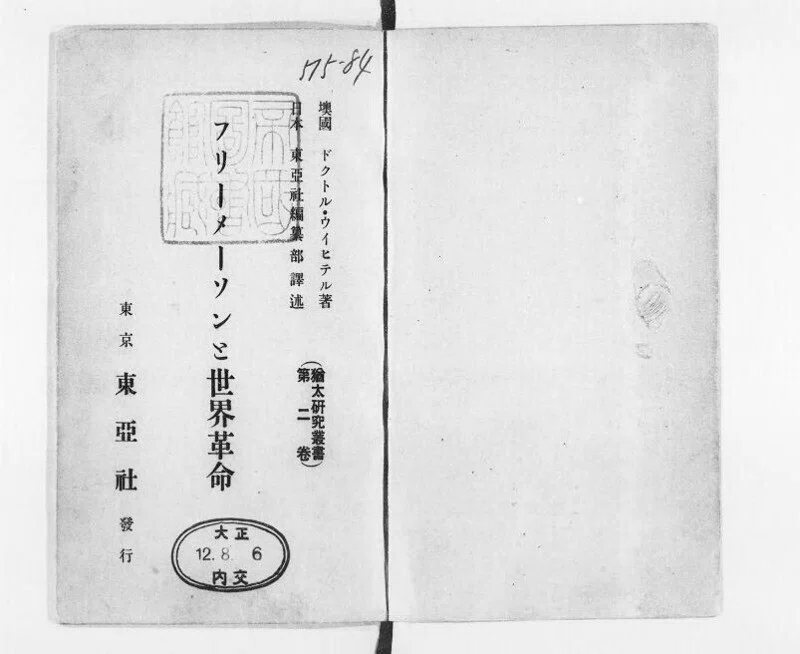 515-84
墺國 ドクトル・ウイヒテル著
日本 東亞社編纂部譯述
(猶太研究叢書
第二卷)
フリーメーソンと世界革命
東京 東亞社 發行
帝國
圖書
館藏
大正
12.8.6
内交